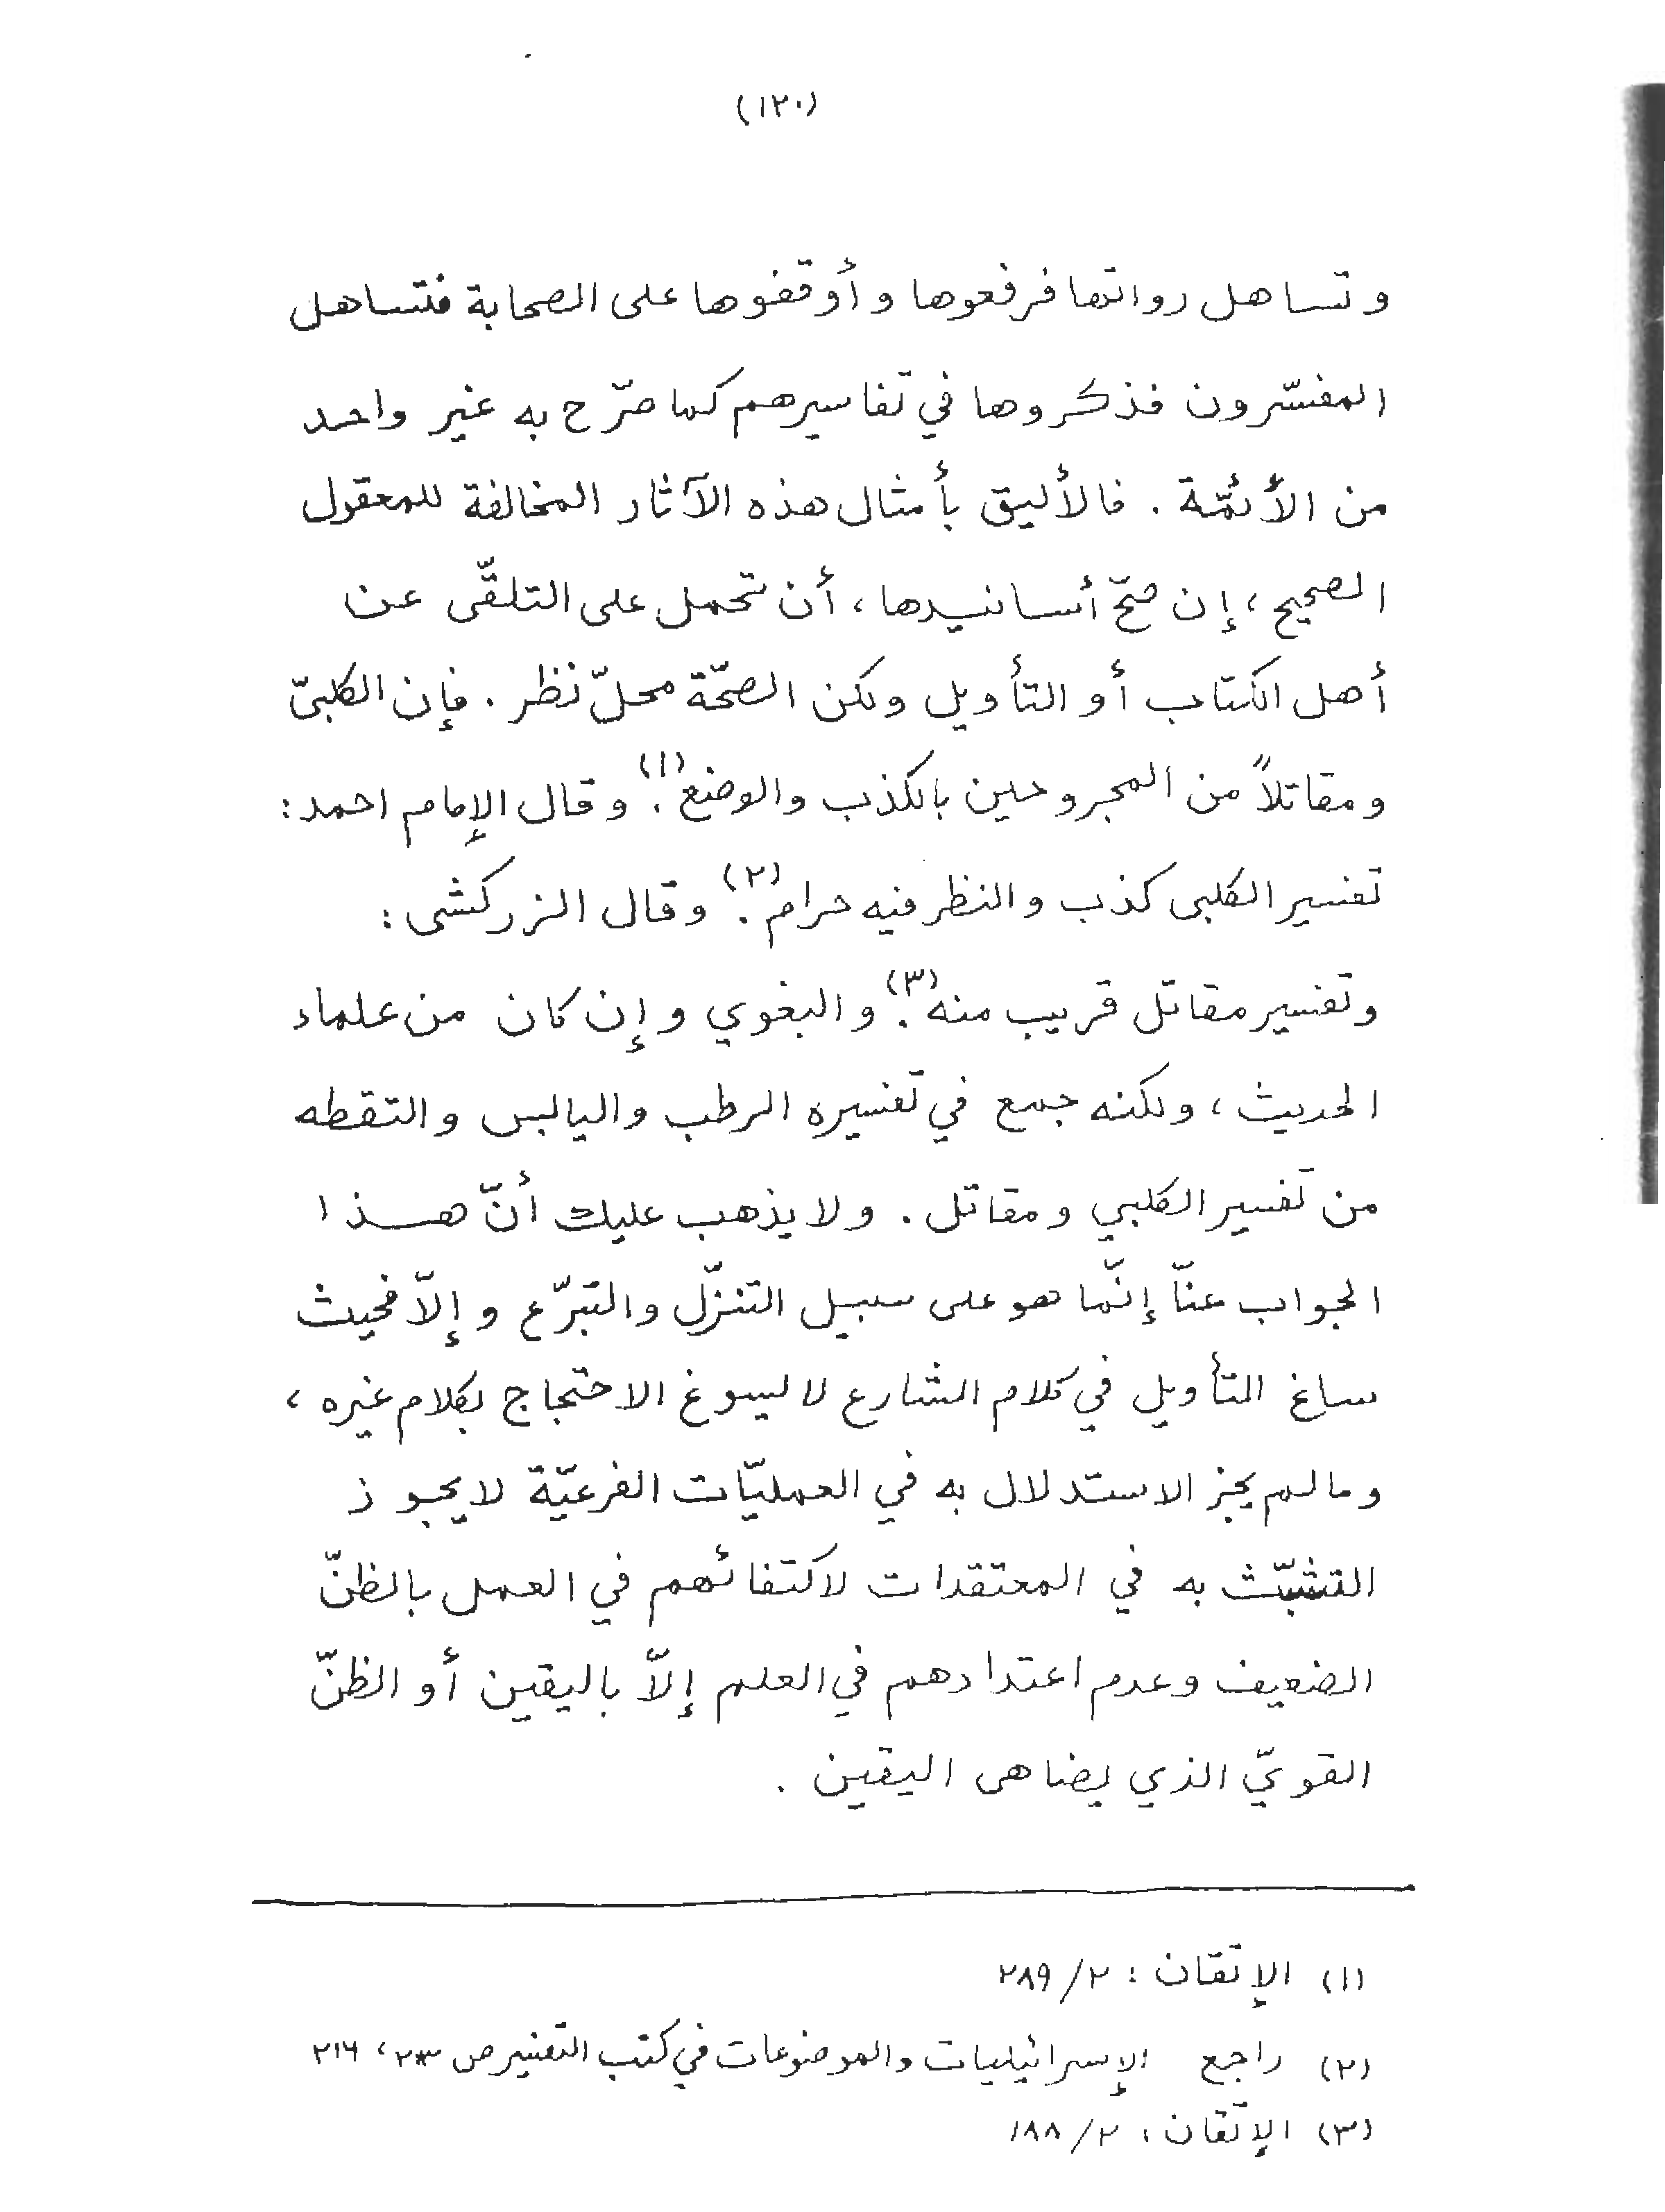 (١٢٠)
وتساهل رواتها فرفعوها وأوقفوها على الصحابة فتساهل
المفسّرون فذكروها في تفاسيرهم كما صرّح به غير واحد
من الأئمّة . فالأليق بأمثال هذه الآثار المخالفة للمعقول
الصحيح ، إن صحّ أسانيدها ، أن تحمل على التلقّى عن
أهل الكتاب أو التأويل ولكن الصحّة محلّ نظر . فإن الكلبىّ
ومقاتلاً من المجروحين بالكذب والوضع (١). وقال الإمام احمد :
تفسير الكلبى كذب والنظر فيه حرام (٢). وقال الزركشى :
وتفسير مقاتل قريب منه (٣). والبغوي وإن كان من علماء
الحديث ، ولكنه جمع في تفسيره الرطب واليابس والتقطه
من تفسير الكلبي ومقاتل . ولا يذهب عليك أنّ هذا
الجواب عنّا إنّما هو على سبيل التنزّل والتبرّع وإلاّ فحيث
ساغ التأويل في كلام الشارع لا يسوغ الاحتجاج بكلام غيره ،
وما لم يجز الاستدلال به في العمليّات الفرعيّة لا يجوز
التشبّث به في المعتقدات لاكتفائهم في العمل بالظنّ
الضعيف وعدم اعتدادهم في العلم إلاّ باليقين أو الظنّ
القويّ الذي يضاهى اليقين .
(١) الإتقان : ٢/ ٢٨٩
(٢) راجع الإسرائيليات والموضوعات في كتب التفسير ص ، ٢١٦
(٣) الإتقان : ٢/ ١٨٨